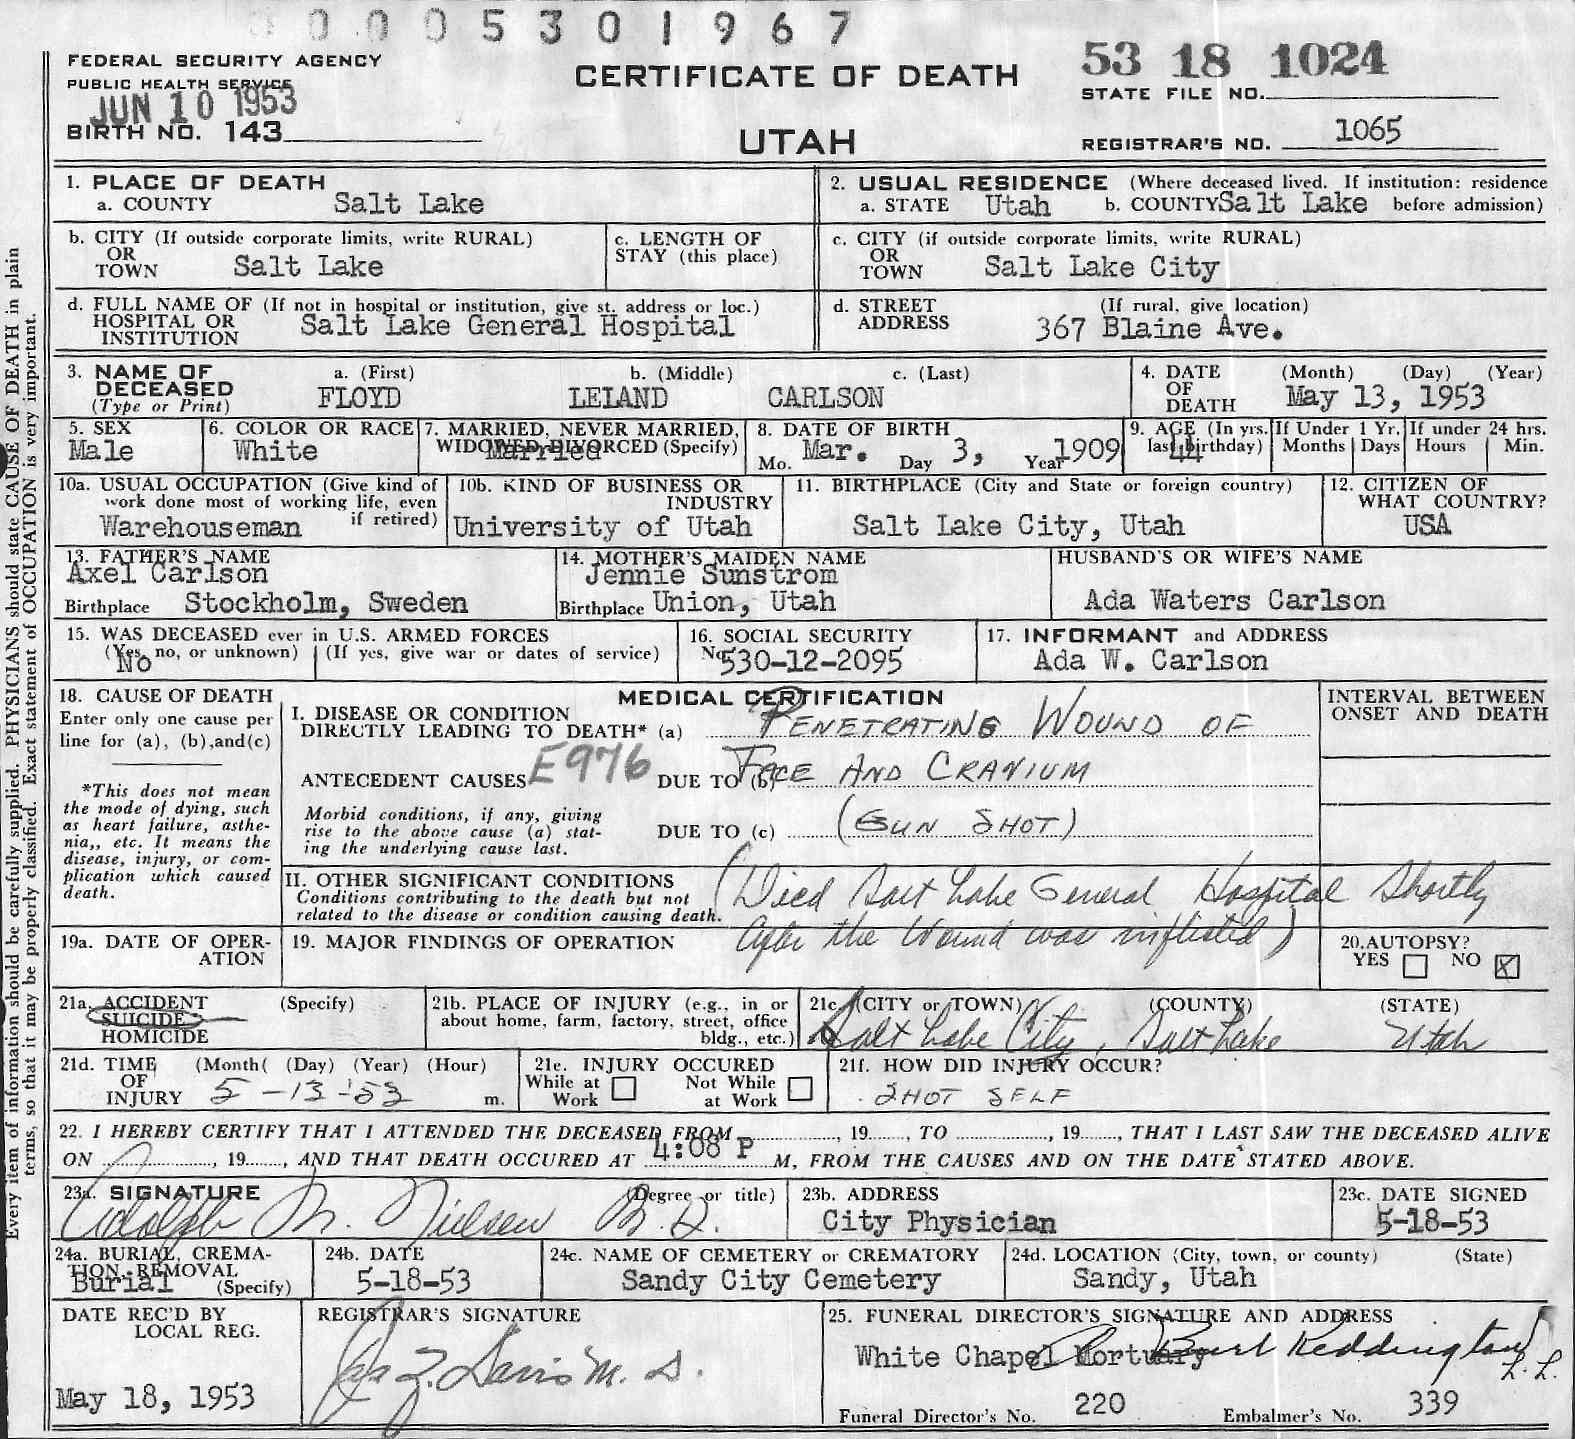 0 0 0 5 3 0 1 9 6 7
FEDERAL SECURITY AGENCY
PUBLIC HEALTH SERVICE
JUN 10 1953
BIRTH NO. 143
CERTIFICATE OF DEATH
UTAH
53 18 1024
STATE FILE NO.
REGISTRAR'S NO. 1065
Every item of information should be carefully supplied. PHYSICIANS should state CAUSE OF DEATH in plain
terms, so that it may be properly classified. Exact statement of OCCUPATION is very important.
1. PLACE OF DEATH
a. COUNTY Salt Lake
2. USUAL RESIDENCE (Where deceased lived. If institution: residence
a. STATE Utah b. COUNTY Salt Lake before admission)
b. CITY (If outside corporate limits, write RURAL)
OR
TOWN Salt Lake
c. LENGTH OF
STAY (this place)
c. CITY (if outside corporate limits, write RURAL)
OR
TOWN Salt Lake City
d. FULL NAME OF (If not in hospital or institution, give st. address or loc.)
HOSPITAL OR
INSTITUTION Salt Lake General Hospital
d. STREET (If rural, give location)
ADDRESS 367 Blaine Ave.
3. NAME OF
DECEASED
(Type or Print)
a. (First) b. (Middle) c. (Last)
FLOYD LELAND CARLSON
4. DATE (Month) (Day) (Year)
OF
DEATH May 13, 1953
5. SEX
Male
6. COLOR OR RACE
White
7. MARRIED, NEVER MARRIED,
WIDOWED, DIVORCED (Specify)
Married
8. DATE OF BIRTH
Mo. Mar. Day 3, Year 1909
9. AGE (In yrs.
last birthday) 44
If Under 1 Yr.
Months Days
If under 24 hrs.
Hours Min.
10a. USUAL OCCUPATION (Give kind of
work done most of working life, even
if retired)
Warehouseman
10b. KIND OF BUSINESS OR
INDUSTRY
University of Utah
11. BIRTHPLACE (City and State or foreign country)
Salt Lake City, Utah
12. CITIZEN OF
WHAT COUNTRY?
USA
13. FATHER'S NAME
Axel Carlson
Birthplace Stockholm, Sweden
14. MOTHER'S MAIDEN NAME
Jennie Sunstrom
Birthplace Union, Utah
HUSBAND'S OR WIFE'S NAME
Ada Waters Carlson
15. WAS DECEASED ever in U.S. ARMED FORCES
(Yes, no, or unknown) (If yes, give war or dates of service)
No
16. SOCIAL SECURITY
No. 530-12-2095
17. INFORMANT and ADDRESS
Ada W. Carlson
18. CAUSE OF DEATH
Enter only one cause per
line for (a), (b), and (c)
*This does not mean
the mode of dying, such
as heart failure, asthe-
nia,, etc. It means the
disease, injury, or com-
plication which caused
death.
MEDICAL CERTIFICATION
I. DISEASE OR CONDITION
DIRECTLY LEADING TO DEATH* (a) PENETRATING WOUND OF
ANTECEDENT CAUSES E976 DUE TO (b) FACE AND CRANIUM
Morbid conditions, if any, giving
rise to the above cause (a) stat-
ing the underlying cause last.
DUE TO (c) (GUN SHOT)
INTERVAL BETWEEN
ONSET AND DEATH
II. OTHER SIGNIFICANT CONDITIONS
Conditions contributing to the death but not
related to the disease or condition causing death.
(Died Salt Lake General Hospital Shortly
after the Wound was inflicted)
19a. DATE OF OPER-
ATION
19. MAJOR FINDINGS OF OPERATION
20. AUTOPSY?
YES NO X
21a. ACCIDENT (Specify)
SUICIDE
HOMICIDE
21b. PLACE OF INJURY (e.g., in or
about home, farm, factory, street, office
bldg., etc.)
21c. (CITY or TOWN) (COUNTY) (STATE)
Salt Lake City, Salt Lake Utah
21d. TIME (Month( (Day) (Year) (Hour)
OF
INJURY 5-13-'53 m.
21e. INJURY OCCURED
While at Work Not While at Work
21f. HOW DID INJURY OCCUR?
SHOT SELF
22. I HEREBY CERTIFY THAT I ATTENDED THE DECEASED FROM , 19 , TO , 19 , THAT I LAST SAW THE DECEASED ALIVE
ON , 19 , AND THAT DEATH OCCURED AT 4:08 P M, FROM THE CAUSES AND ON THE DATE STATED ABOVE.
23a. SIGNATURE (Degree or title)
Adolph M. Nielsen M.D.
23b. ADDRESS
City Physician
23c. DATE SIGNED
5-18-53
24a. BURIAL, CREMA-
TION, REMOVAL
Burial (Specify)
24b. DATE
5-18-53
24c. NAME OF CEMETERY or CREMATORY
Sandy City Cemetery
24d. LOCATION (City, town, or county) (State)
Sandy, Utah
DATE REC'D BY
LOCAL REG.
May 18, 1953
REGISTRAR'S SIGNATURE
Davis M. D.
25. FUNERAL DIRECTOR'S SIGNATURE AND ADDRESS
White Chapel Mortuary Burt Reddington
L.L.
Funeral Director's No. 220 Embalmer's No. 339